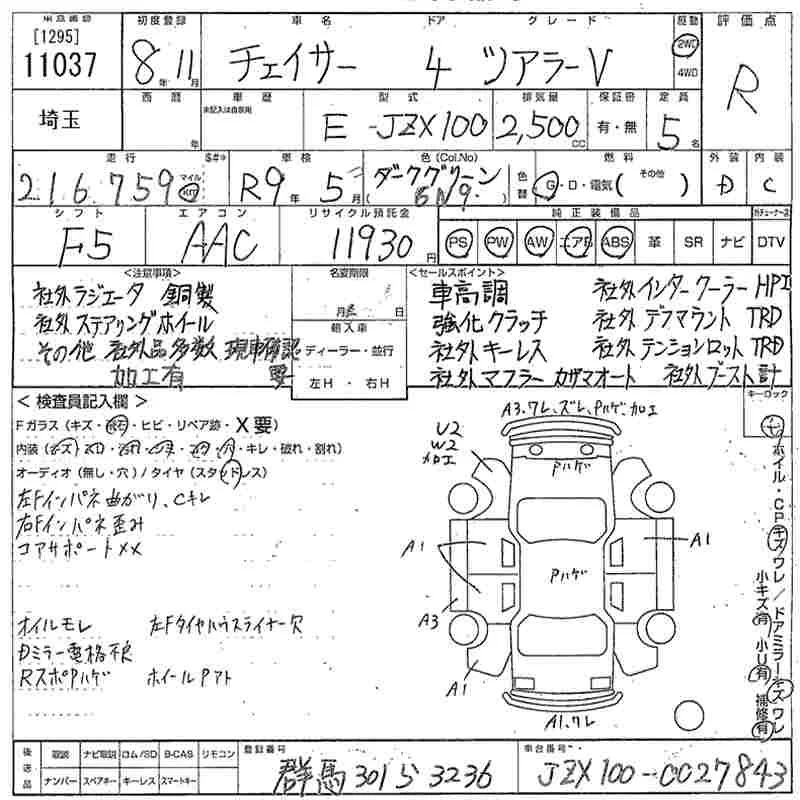 [1295]
11037
初度登録
8年11月
車名
チェイサー
ドア
4
グレード
ツアラーV
駆動
2WD
4WD
評価点
R
埼玉
西暦
年
車歴
未記入は自家用
型式
E-JZX100
排気量
2,500CC
保証書
有・無
定員
5名
走行
216,759
マイル
S#*
車検
R9年5月
色(Col.No)
ダークグリーン
(6N9.)
色替
燃料
G・D・電気(その他)
外装
D
内装
C
シフト
F5
エアコン
AAC
リサイクル預託金
11930円
純正装備品
PS PW AW エアB ABS 革 SR ナビ DTV
<注意事項>
社外ラジエータ 銅製
社外ステアリングホイール
その他 社外品多数 現車確認要
加工有
名変期限
月 日
輸入車
ディーラー・並行
左H・右H
<セールスポイント>
車高調 社外インタークーラーHPI
強化クラッチ 社外デフマウントTRD
社外キーレス 社外テンションロットTRD
社外マフラーカザマオート 社外ブースト計
キーロック
<検査員記入欄>
Fガラス(キズ・飛石・ヒビ・リペア跡・X要)
オーディオ(無し・穴)/タイヤ(スタッドレス)
左Fインパネ曲がり、Cキレ
右Fインパネ歪み
コアサポートXX
オイルモレ 左Fタイヤハウスライナー欠
Dミラー電格不良
RスポPハゲ ホイールPアト
A3.ワレ、ズレ、Pハゲ.加工
U2
W2
加工
Pハゲ
A1
A1
Pハゲ
A3
A1
A1.ワレ
ホイル・CPキズワレ/ドアミラーキズワレ
小キズ有 小U有 補修有
後送品
取説 ナビ取説 ロム/SD B-CAS リモコン
ナンバー スペアキー キーレス スマートキー
登録番号
群馬301 ら 3236
車台番号
JZX100-0027843